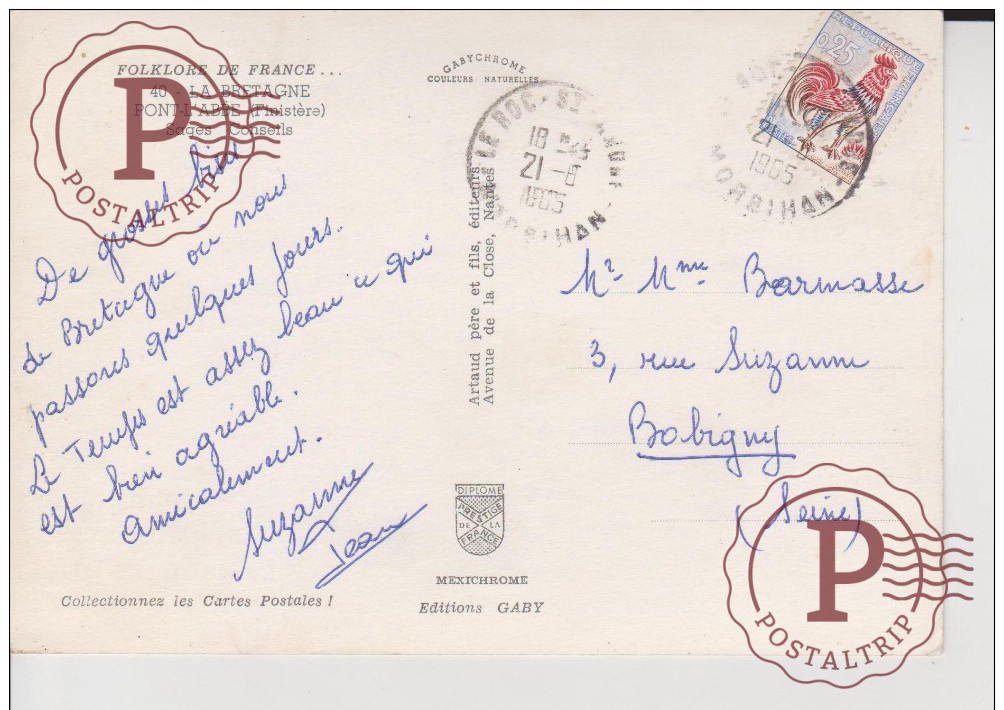 FOLKLORE DE FRANCE...
40 - LA BRETAGNE
PONT-L'ABBÉ (Finistère)
Sages Conseils
De grosses bises
de Bretagne où nous
passons quelques jours.
Le Temps est assez beau ce qui
est bien agréable.
Amicalement.
Suzanne
Jean
Collectionnez les Cartes Postales !
GABYCHROME
COULEURS NATURELLES
Artaud père et fils, éditeurs.
Avenue de la Close, Nantes
DIPLOME
PRESTIGE
DE LA
FRANCE
MEXICHROME
Editions GABY
18 H 45
21-8
1965
MORBIHAN
REPUBLIQUE FRANÇAISE
0,25
21-8
1965
MORBIHAN
Mr Mme Barmasse
3, rue Suzanne
Bobigny
(Seine)
P
POSTALTRIP
P
POSTALTRIP